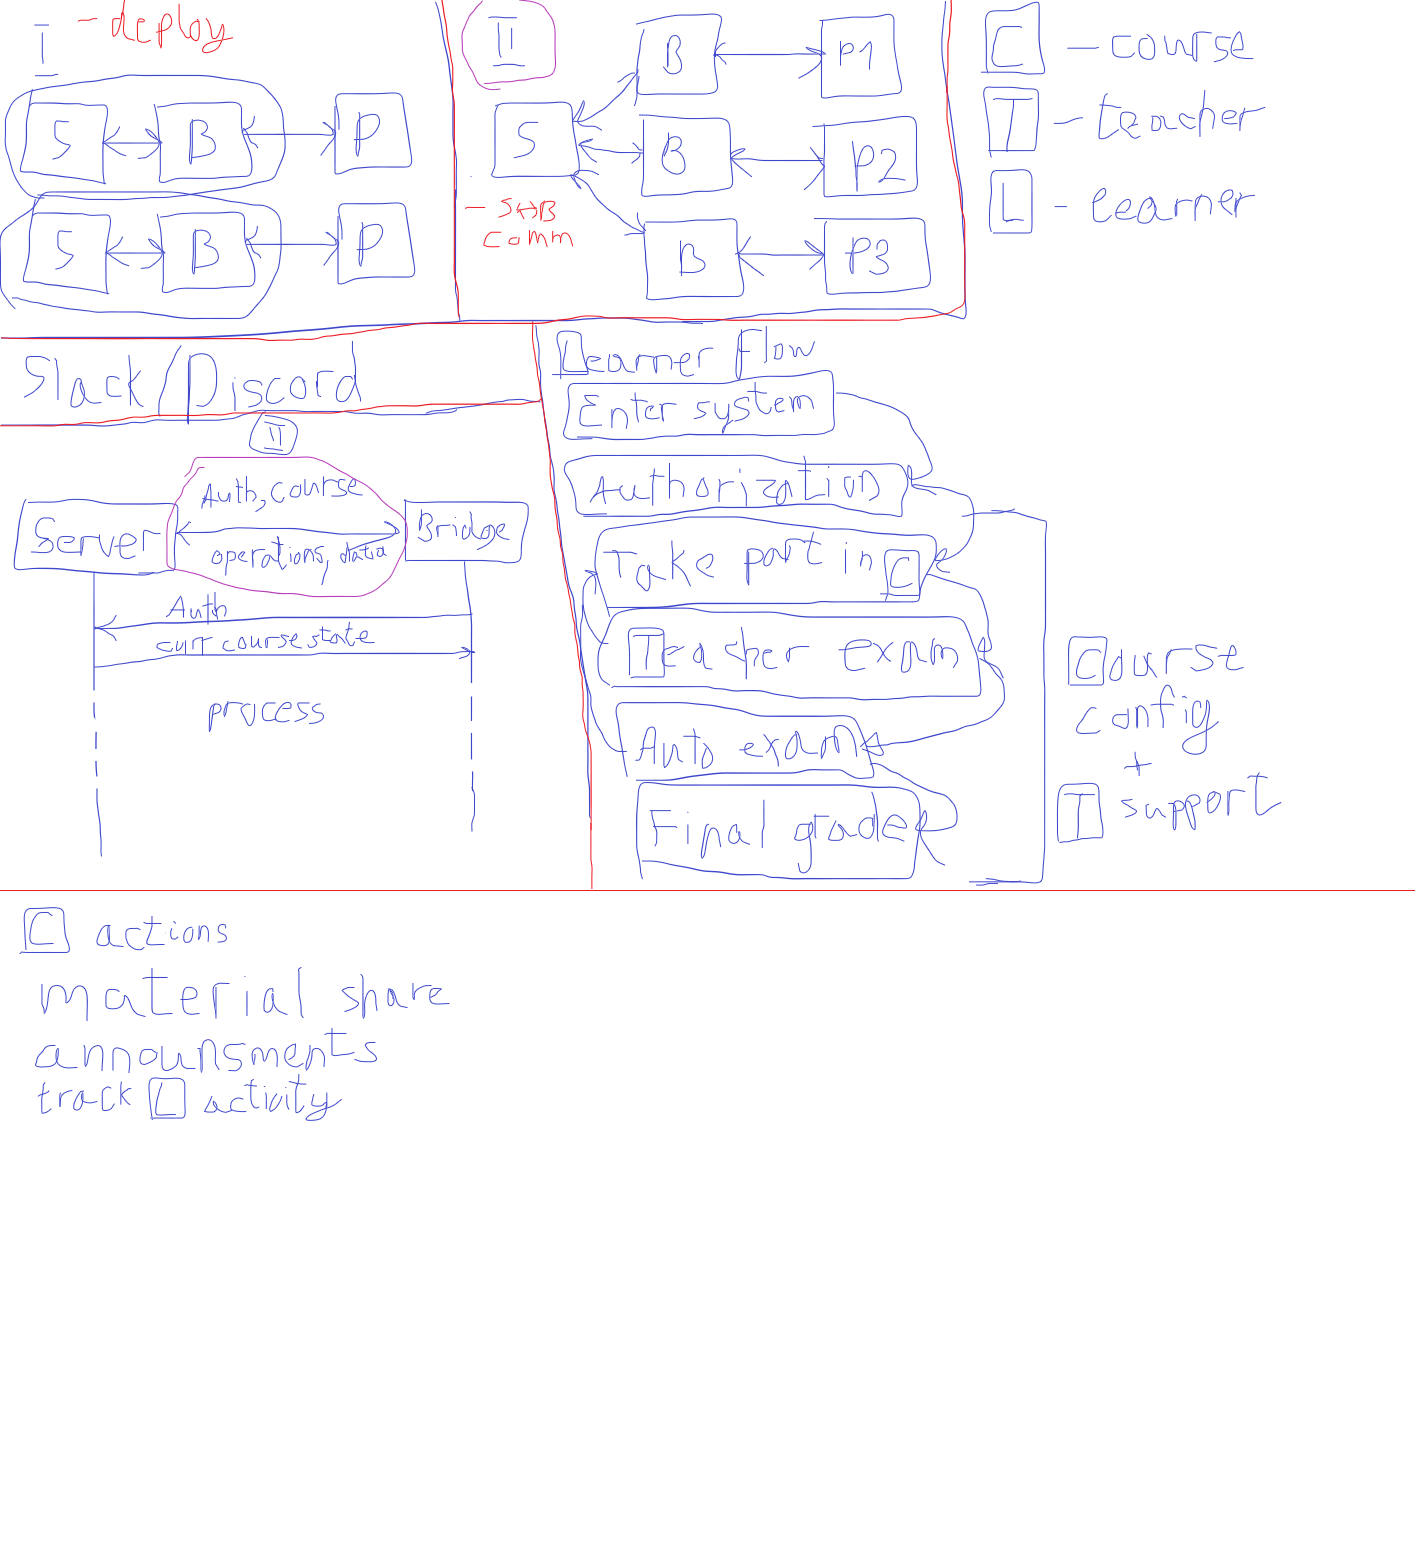 I - deploy
S B P
S B P
II
S
B P1
B P2
B P3
- S↔B
comm
C - course
T - teacher
L - learner
Slack/Discord
II
Server
Auth, course
operations, data
Bridge
Auth
curr course state
process
Learner Flow
Enter system
Authorization
Take part in C
Teacher exam
Auto exam
Final grade
Course
config
+
T support
C actions
material share
announsments
track L activity